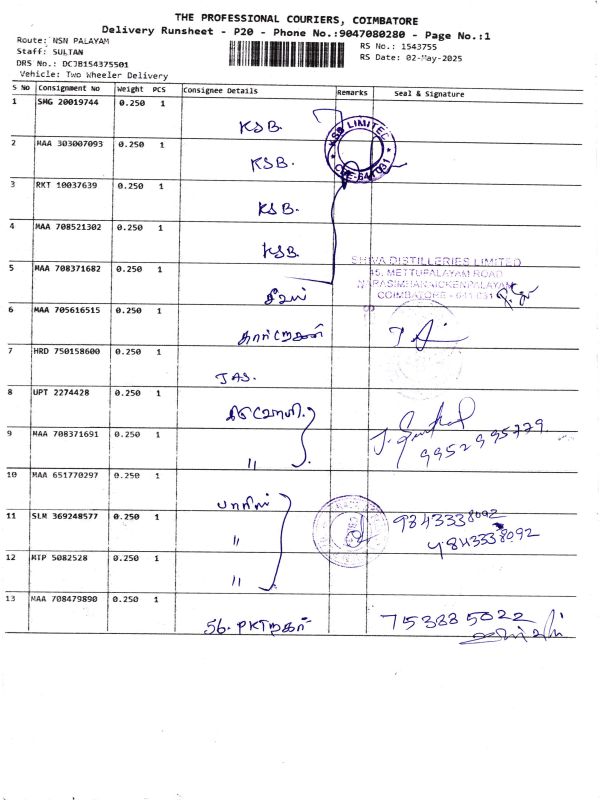 THE PROFESSIONAL COURIERS, COIMBATORE
Delivery Runsheet - P20 - Phone No.:9047080280 - Page No.:1
Route: NSN PALAYAM
Staff: SULTAN
DRS No.: DCJB154375501
Vehicle: Two Wheeler Delivery
RS No.: 1543755
RS Date: 02-May-2025
S No Consignment No Weight PCS Consignee Details Remarks Seal & Signature
1 SMG 20019744 0.250 1 KSB.
KSB LIMITED
CBE-641 031
2 MAA 303007093 0.250 1 KSB.
3 RKT 10037639 0.250 1 KSB.
4 MAA 708521302 0.250 1 KSB.
5 MAA 708371682 0.250 1
SHIVA DISTILLERIES LIMITED
45, METTUPALAYAM ROAD
NARASIMHANAICKENPALAYAM
COIMBATORE - 641 031
6 MAA 705616515 0.250 1
7 HRD 750158600 0.250 1 JAS.
8 UPT 2274428 0.250 1
9 MAA 708371691 0.250 1 "
9952995779
10 MAA 651770297 0.250 1
11 SLM 369248577 0.250 1 "
9843338092
9843338092
12 MTP 5082528 0.250 1 "
13 MAA 708479890 0.250 1 56. PKT நகர்
753885022